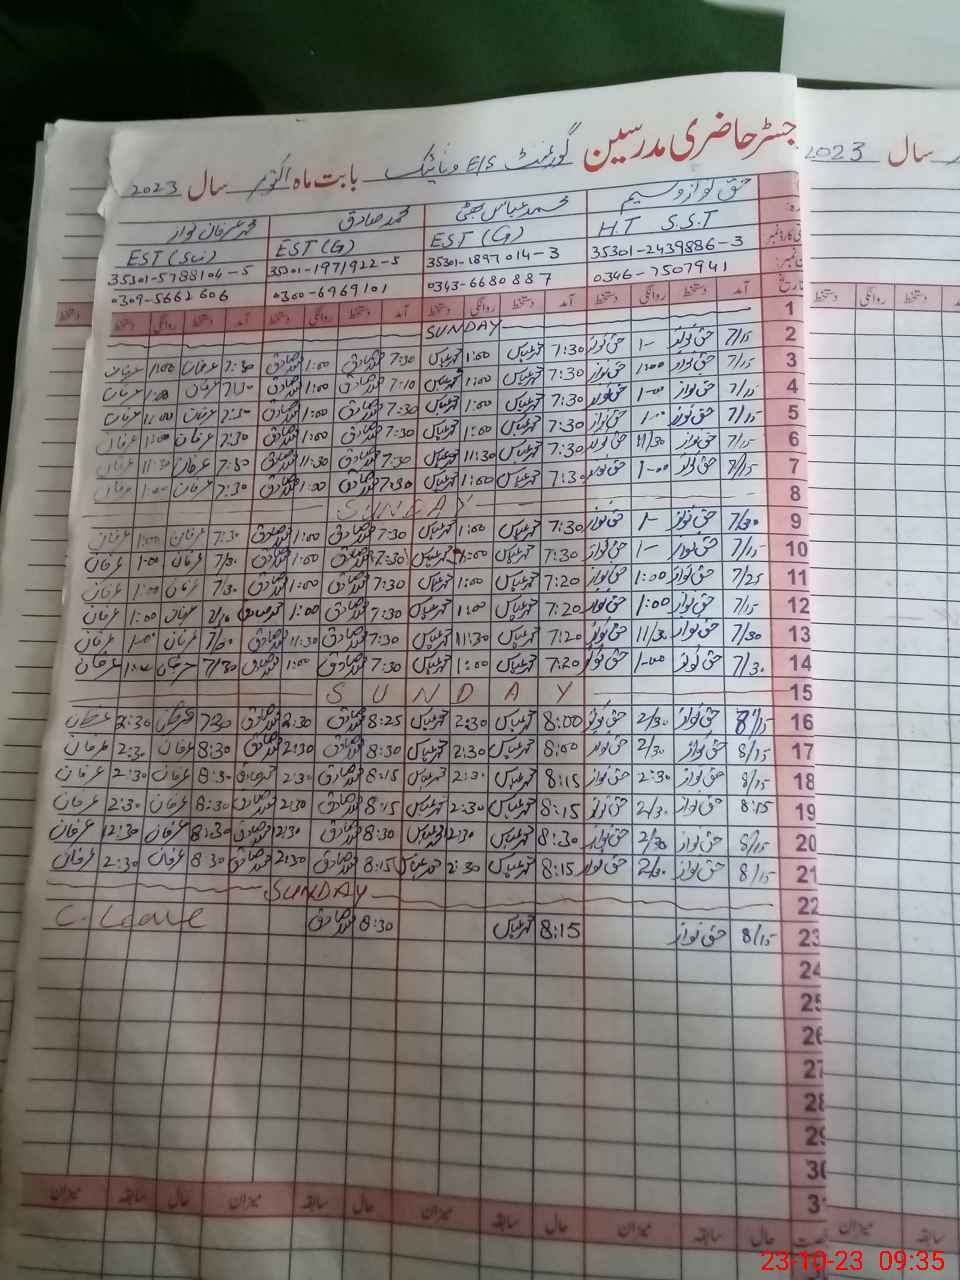 رجسٹر حاضری مدرسین گورنمنٹ E/S بابت ماہ اکتوبر سال 2023
سال 2023
حق نواز وسیم محمد عباس بھٹی محمد صادق محمد عرفان نواز
H.T S.S.T EST (G) EST (G) EST (Sci)
35301-2439886-3 35301-1897014-3 35301-1971922-5 35301-5788104-5
0346-7507941 0343-6680887 0300-6969101 0309-5662606
آمد دستخط روانگی دستخط آمد دستخط روانگی دستخط آمد دستخط روانگی دستخط آمد دستخط روانگی دستخط
1 SUNDAY
2 7/15 حق نواز 1- حق نواز 7:30 محمد عباس 1:00 محمد عباس 7:30 محمد صادق 1:00 محمد صادق 7:30 عرفان 1:00 عرفان
3 7/15 حق نواز 1:00 حق نواز 7:30 محمد عباس 1:00 محمد عباس 7:10 محمد صادق 1:00 محمد صادق عرفان 1:00 عرفان
4 7/15 حق نواز 1-00 حق نواز 7:30 محمد عباس 1:00 محمد عباس 7:30 محمد صادق 1:00 محمد صادق 7:30 عرفان 1:00 عرفان
5 7/15 حق نواز حق نواز 7:30 محمد عباس 1:00 محمد عباس 7:30 محمد صادق 1:00 محمد صادق 7:30 عرفان 1:00 عرفان
6 7/15 حق نواز 11/30 حق نواز 7:30 محمد عباس 11:30 محمد عباس 7:30 محمد صادق 11:30 محمد صادق 7:30 عرفان 11:30 عرفان
7 7/15 حق نواز 1-00 حق نواز 7:30 محمد عباس 1:00 محمد عباس 7:30 محمد صادق 1:00 محمد صادق 7:30 عرفان 1:00 عرفان
8 SUNDAY
9 7/30 حق نواز 1- حق نواز 7:30 محمد عباس 1:00 محمد عباس 7:30 محمد صادق 1:00 محمد صادق 7:30 عرفان 1:00 عرفان
10 7/15 حق نواز 1- حق نواز 7:30 محمد عباس 1:00 محمد عباس 7:30 محمد صادق 1:00 محمد صادق 7/30 عرفان 1:00 عرفان
11 7/25 حق نواز 1:00 حق نواز 7:20 محمد عباس 1:00 محمد عباس 7:30 محمد صادق 1:00 محمد صادق 7/30 عرفان 1:00 عرفان
12 7/15 حق نواز 1:00 حق نواز 7:20 محمد عباس 1:00 محمد عباس 7:30 محمد صادق 1:00 محمد صادق عرفان 1:00 عرفان
13 7/30 حق نواز 11/30 حق نواز 7:20 محمد عباس 11:30 محمد عباس 7:30 محمد صادق 11:30 محمد صادق عرفان عرفان
14 7/30 حق نواز 1-00 حق نواز 7:20 محمد عباس 1:00 محمد عباس 7:30 محمد صادق 1:00 محمد صادق 7/30 عرفان عرفان
15 SUNDAY
16 8/15 حق نواز 2/30 حق نواز 8:00 محمد عباس 2:30 محمد عباس 8:25 محمد صادق 2:30 محمد صادق 730 عرفان 2:30 عرفان
17 8/15 حق نواز 2/30 حق نواز 8:00 محمد عباس 2:30 محمد عباس 8:30 محمد صادق 2:30 محمد صادق 8:30 عرفان 2:30 عرفان
18 8/15 حق نواز 2:30 حق نواز 8:15 محمد عباس 2:30 محمد عباس 8:15 محمد صادق 2:30 محمد صادق 8:30 عرفان 2:30 عرفان
19 8:15 حق نواز 2/30 حق نواز 8:15 محمد عباس 2:30 محمد عباس 8:15 محمد صادق 2:30 محمد صادق 8:30 عرفان 2:30 عرفان
20 8/15 حق نواز 2/30 حق نواز 8:30 محمد عباس 2:30 محمد عباس 8:30 محمد صادق 2:30 محمد صادق 8:30 عرفان 2:30 عرفان
21 8/15 حق نواز حق نواز 8:15 محمد عباس 2:30 محمد عباس 8:15 محمد صادق 2:30 محمد صادق 8 30 عرفان 2:30 عرفان
22 SUNDAY
23 8/15 حق نواز 8:15 محمد عباس 8:30 محمد صادق C. Leave
24
25
26
27
28
29
30
31
حال سابقہ میزان حال سابقہ میزان حال سابقہ میزان حال سابقہ میزان
23-10-23 09:35